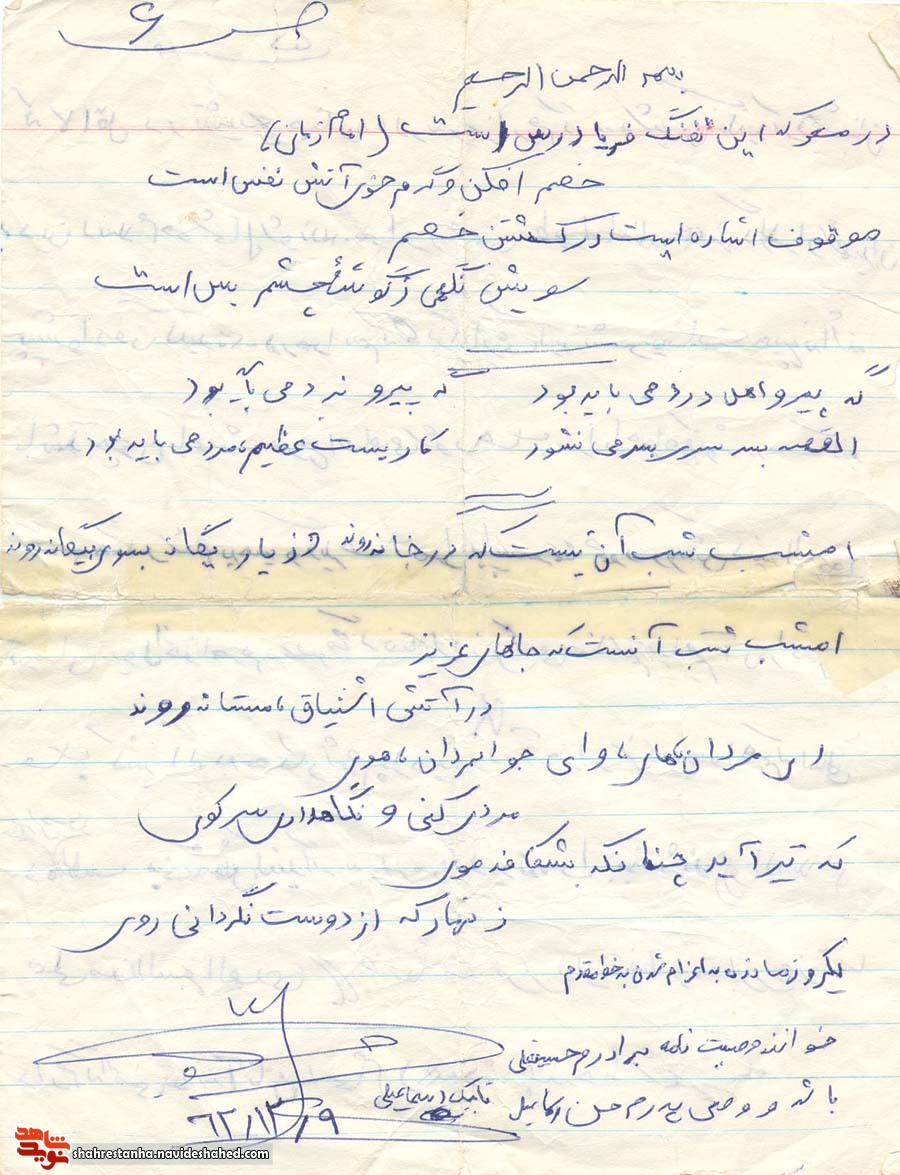 ص ۶
بسمه الرحمن الرحیم
در معرکه این تفنگ فریادرس است (امام زمان)
خصم افکن و گرم خوی آتش نفس است
موقوف اشاره ایست در کشتن خصم
سویش نگهی ز گوشهٔ چشم بس است
گه پیرو اهل درد می باید بود گه پیرو نبرد می باید بود
القصه بسر سری بسر می نشود کاریست عظیم، مرد می باید بود
امشب شب آن نیست که در خانه روند از یار یگانه بسوی بیگانه روند
امشب شب آنست که جانهای عزیز
در آتش اشتیاق، مستانه روند
ای مردان، های، وای جوانمردان، هوی
مردی کنی و نگاهداری سر کوی
که تیر آید چنانکه بشکافد موی
زنهار که از دوست نگردانی روی
یکروز مانده به اعزام شدن به خط مقدم
خواننده وصیت نامه برادرم حسینعلی
باشد و وصی پدرم حسن اسماعیلی
تابیک اسماعیلی
۶۲/۱۲/۹
نوید شاهد
shahrestanha.navideshahed.com